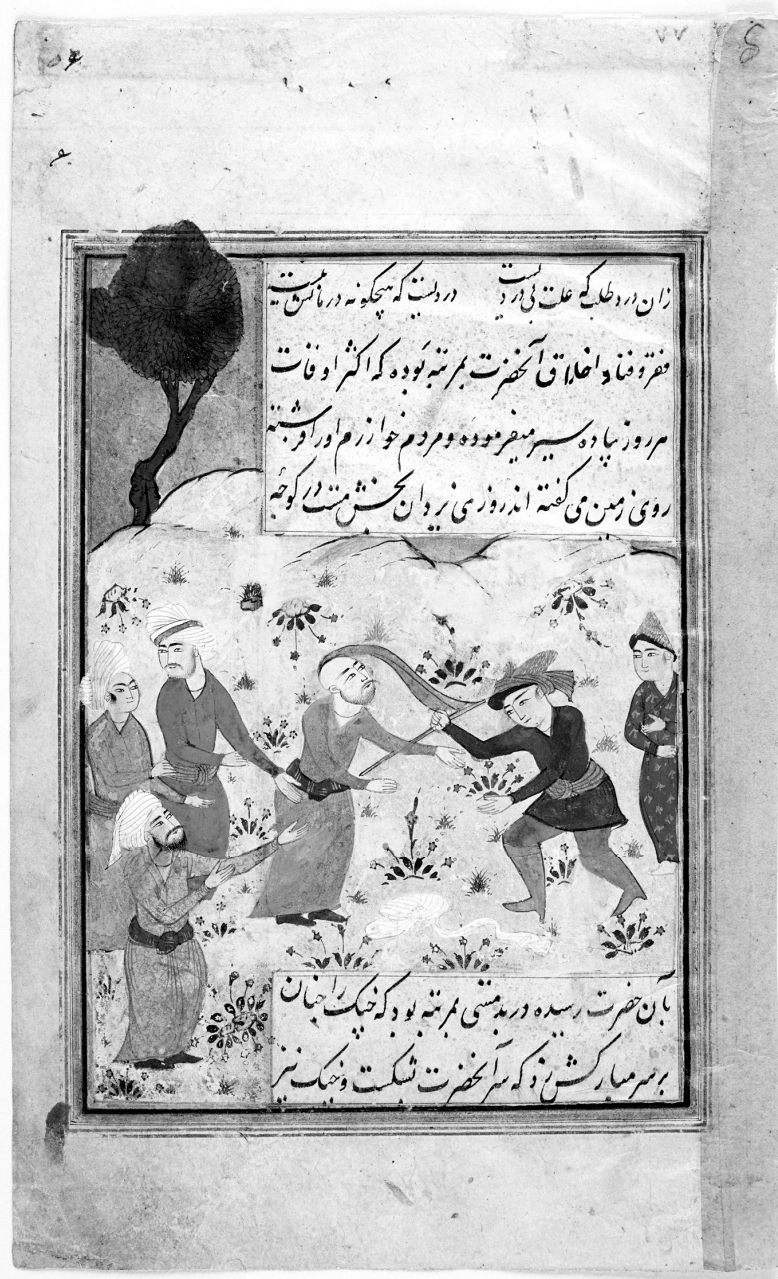 ٧٧
زان درد طلب که علت بی دردیست دردیست که هیچگونه درمانش نیست
فقر و فنا و اخلاق آنحضرت بمرتبه بوده که اکثر اوقات
هر روز پیاده سیر میفرموده و مردم خوارزم او را فرشته
روی زمین می گفته اند روزی یزدان بخش مست در کوچه
بآن حضرت رسیده در بدمستی بمرتبه بود که را چنان
بر سر مبارکش بزد که سر آنحضرت بشکست و نیز